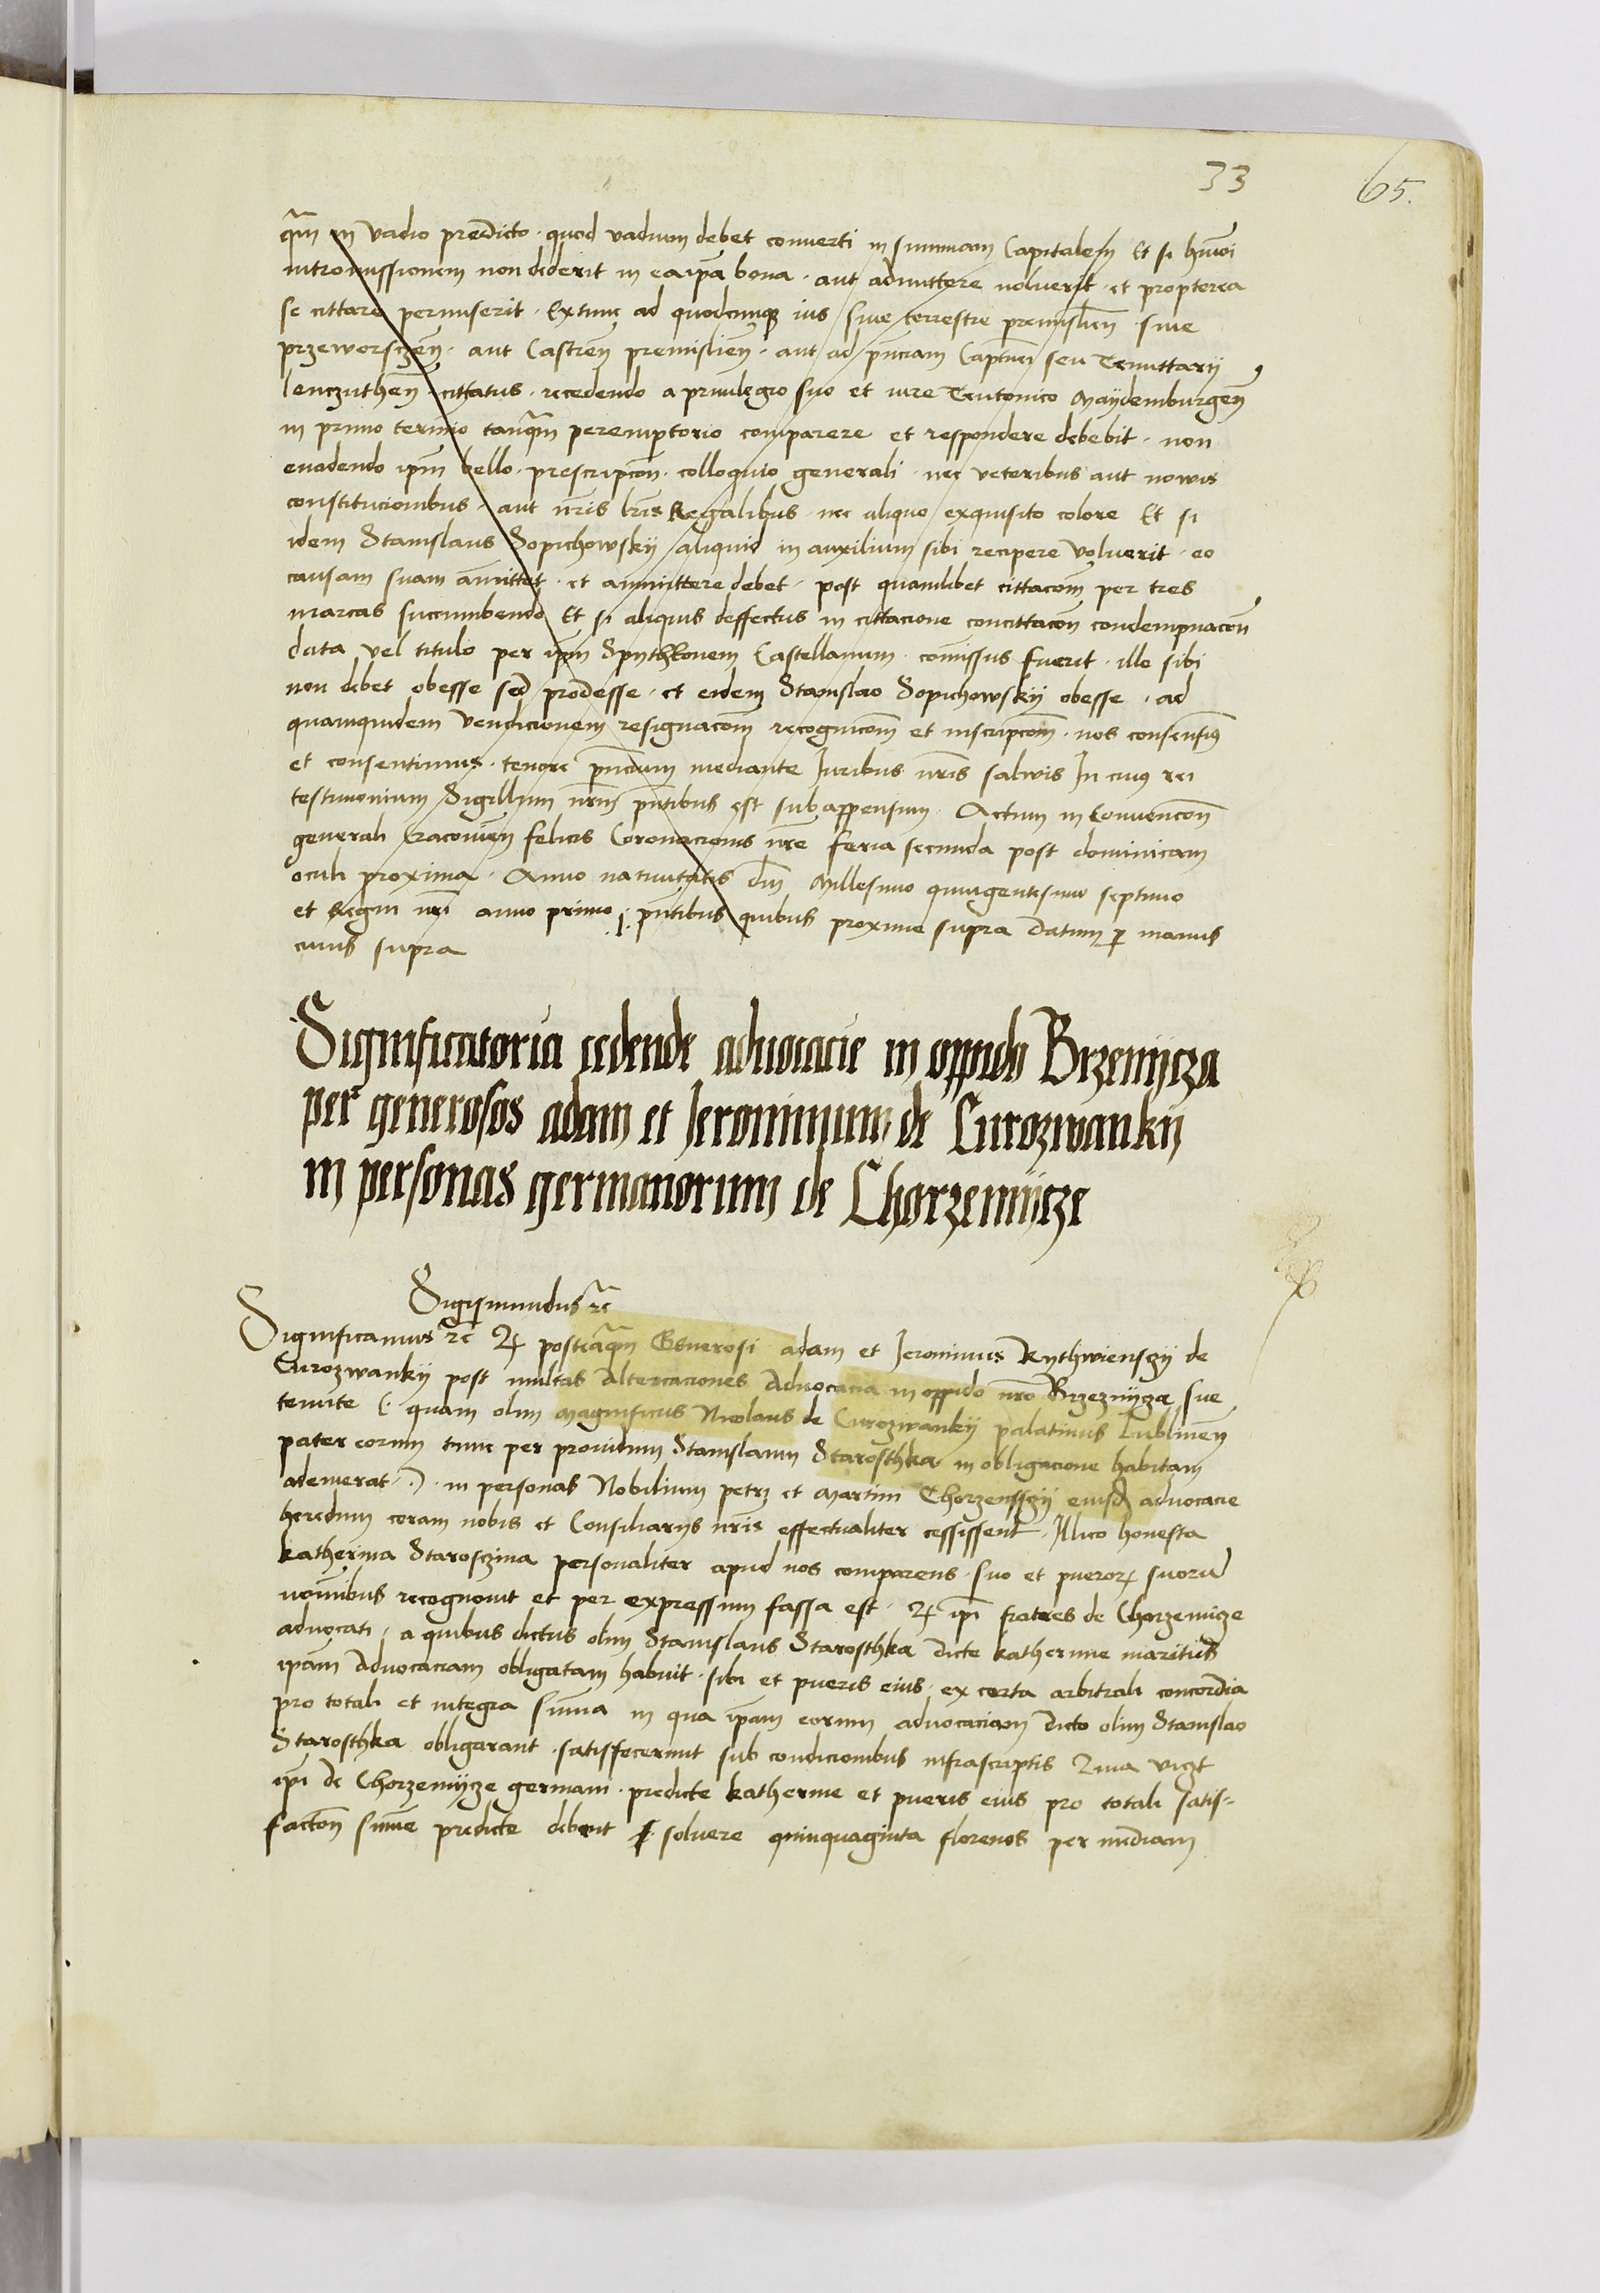 33
65.
qm̄ in vadio predicto · quod vadium debet conuerti in summam Capitalem Et si hmōi
intromissionem non dederit in eaipā bona · aut admittere noluerit · et propterea
se cittare permiserit · Extunc ad quodcunque ius siue terrestre premislien̄ siue
przeworsczen̄ · aut Castren̄ premislien̄ · aut ad pn̄ciam Captnei seu Tenuttarij
lenczuthen̄ · cittatus · recedendo a priuilegio suo et iure Teutonico Maydemburgen̄
in primo termino tanqm̄ peremptorio comparere et respondere debebit · non
euadendo ipm̄ bello · prescripcōn · colloquio generali · nec veteribus aut nowis
constitucionibus · aut nr̄is lrīs Regalibus · nec aliquo exquisito colore Et si
idem Stanislaus Sopichowskij aliquid in auxilium sibi recipere voluerit · eo
causam suam amittet · et ammittere debet · post quamlibet cittacōm per tres
marcas succumbendo Et si aliquis deffectus in cittacione concittacōn condempnacōn
data vel titulo per ipm̄ Spythkonem Castellanum · comissus fuerit · ille sibi
non debet obesse sed prodesse · et eidem Stanislao Sopichowskij obesse · ad
quamquidem vendicionem resignacōm recognicōm et inscripcōm · nos consensim9
et consentimus · tenore pn̄cium mediante Iuribus nr̄is saluis In cuius rei
testimonium Sigillum nr̄m pn̄tibus est subappensum · Actum in Conuencōn
generali Cracouien̄ felicis Coronacionis nr̄e feria secunda post dominicam
oculi proxima · Anno natiuitatis dn̄i Millesimo quingentesimo septimo
et Regni nr̄i anno primo · pn̄tibus quibus proxime supra Datum p manus
cuius supra
Significatoria cedende aduocacie in oppido Brzenijcza
per generosos adam et Jeronimum de Curozwankij
in personas germanorum de Chorzemijcze
Sigismundus rc̄
Significamus rc̄ Q posteaqm̄ Generosi adam et Jeronimus Rythwienszij de
Curozwankij post multas altercaciones Aduocacia in oppido nr̄o Brzeznijza sue
tenute (: quam olim magnificus Nicolaus de Curozwankij palatinus Lublinen̄
pater eorum tunc per prouidum Stanislaum Starosthka in obligacione habitam
ademerat :) in personas Nobilium petri et Martini Chorzenszij eiusd aduocacie
heredum coram nobis et Consiliarijs nr̄is effectualiter cessissent · Illico honesta
katherina Starosczina personaliter apud nos comparens · suo et pueror suorū
nominibus recognouit et per expressum fassa est · Q ipi fratres de Chorzemicze
aduocati · a quibus dictus olim Stanislaus Starosthka dicte katherine maritus
ipam̄ Aduocaciam obligatam habuit · sibi et pueris eius · ex certa arbitrali concordia
pro totali et integra summa in qua ipam̄ eorum aduocaciam dicto olim Stanislao
Starosthka obligarant · satisfecerunt sub condicionibus infrascriptis Quia vigt
ipi de Chorzemijcze germani · predicte katherine et pueris eius pro totali satis-
factōn summe predicte debent soluere quinquaginta florenos per mediam